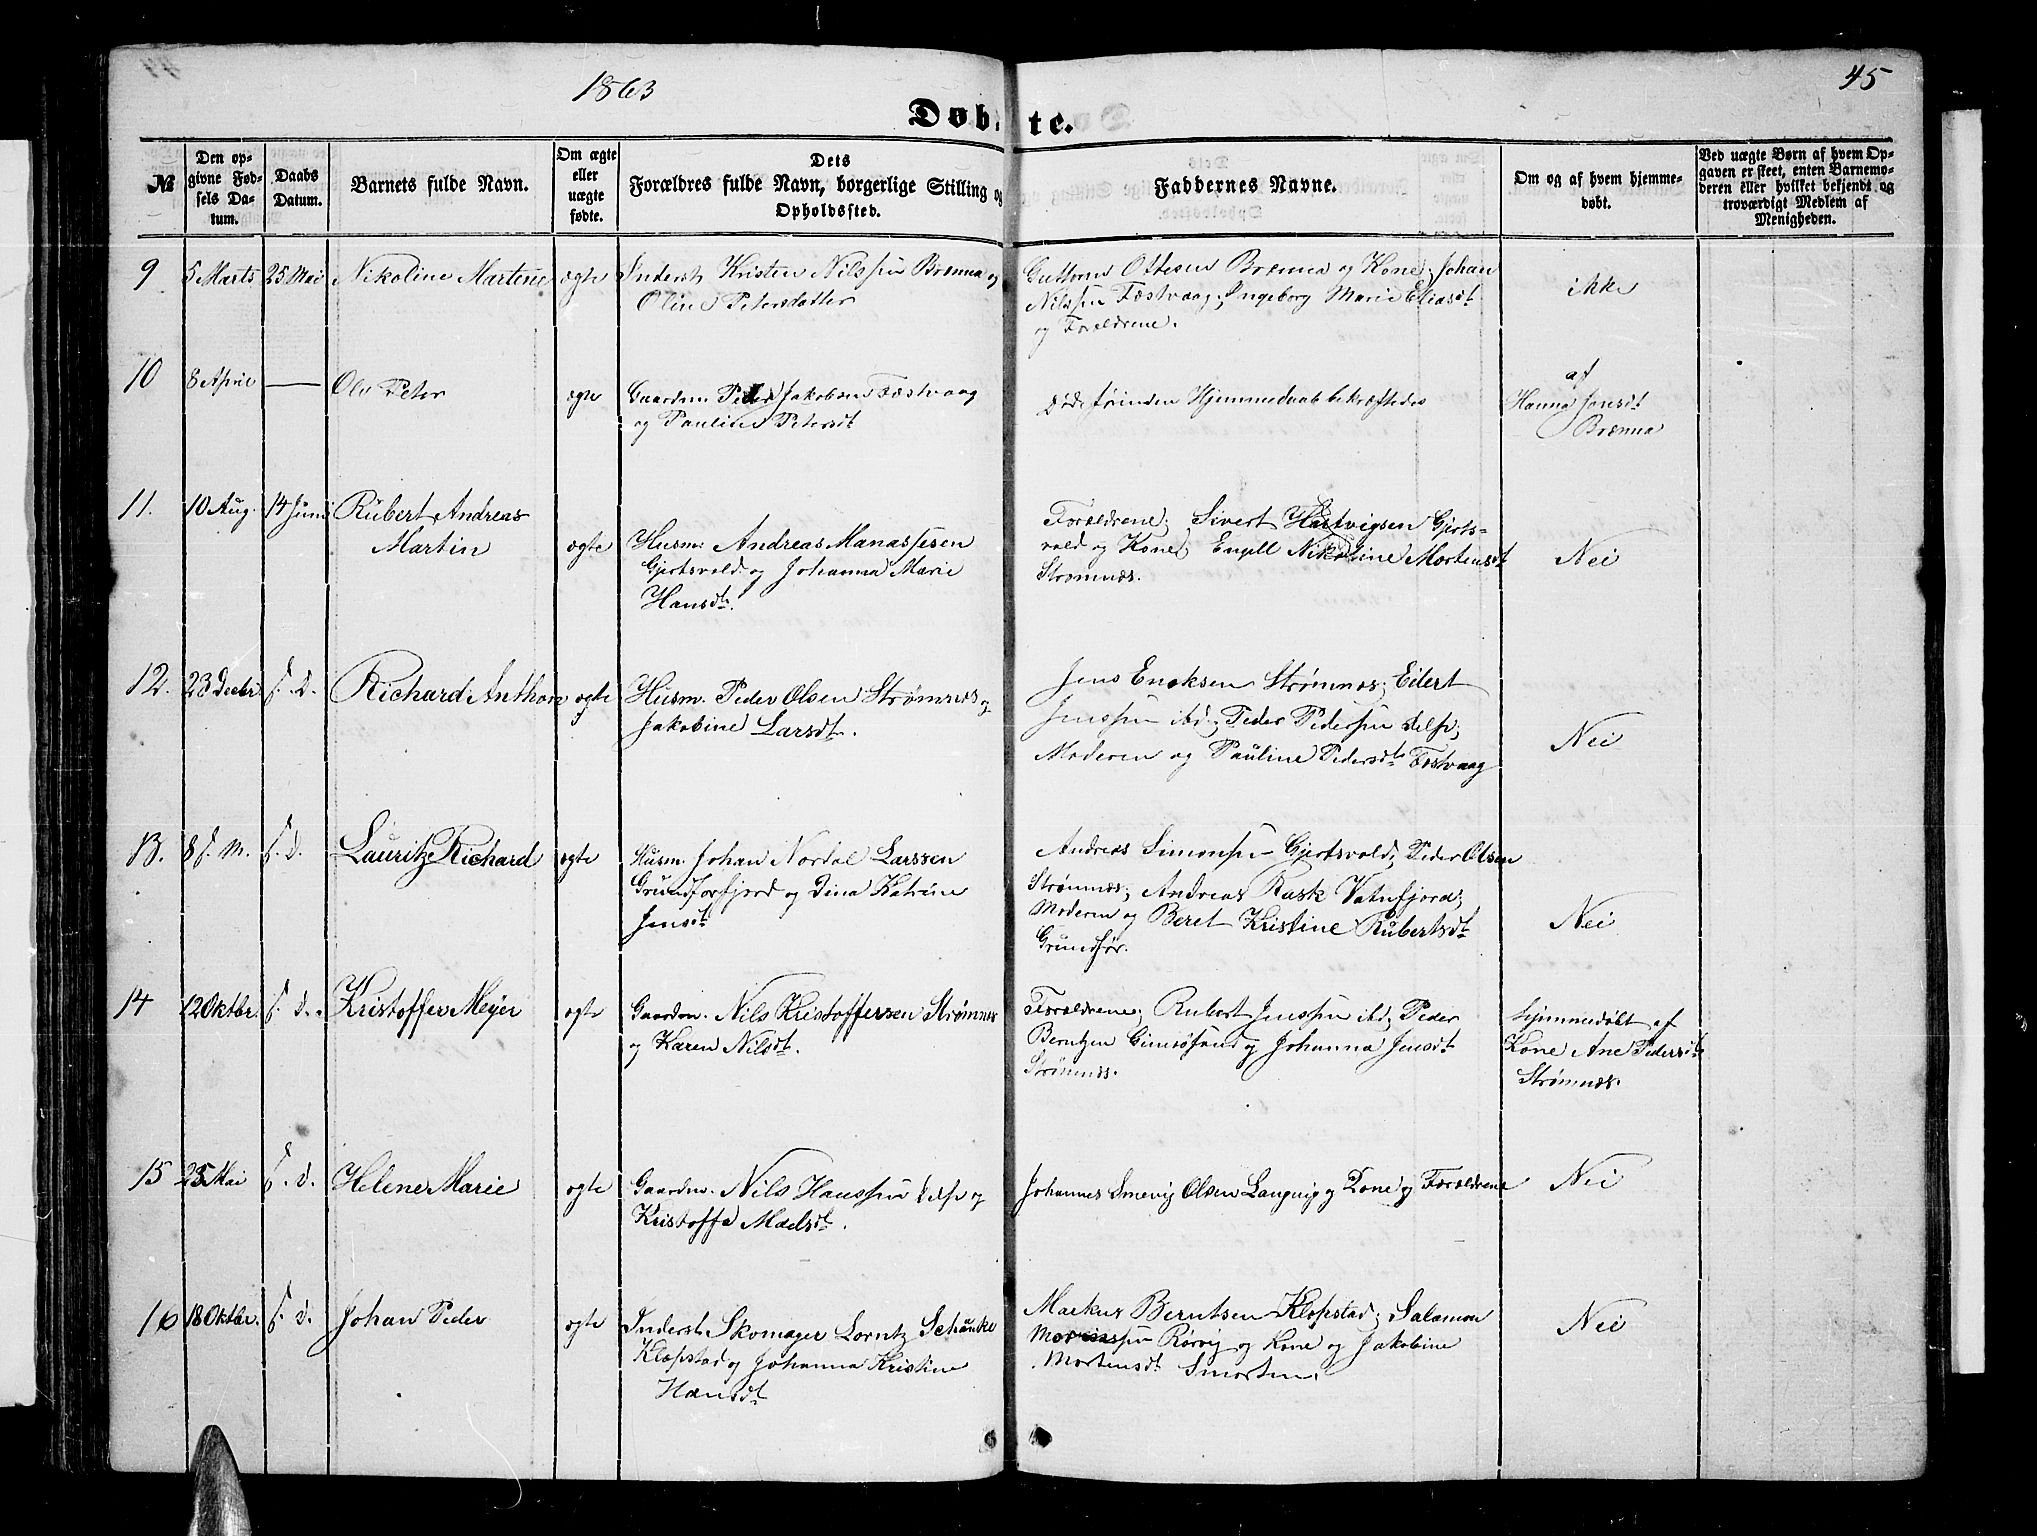 1863
45
Døbte.
№
Den op-
givne Fød-
sels Da-
tum.
Daabs
Datum.
Barnets fulde Navn.
Om ægte
eller
uægte
fødte.
Dets
Forældres fulde Navn, borgerlige Stilling og
Opholdssted.
Faddernes Navne.
Om og af hvem hjemme-
døbt.
Ved uægte Børn af hvem Op-
gaven er skeet, enten Barnemo-
deren eller hvilket bekjendt og
troværdigt Medlem af
Menigheden.
9 5 Marts 25 Mai Nikoline Martine ægte
Inderst Kristen Nilssen Brænna og
Oline Petersdatter
Guttorm Ottesen Brænna og Kone; Johan
Nilssen Fæstvaag; Ingeborg Marie Eliasdt
og Forældrene.
ikke
10 8 April — Ole Peter ægte
Gaardm. Peder Jakobsen Fæstvaag
og Pauline Petersdt
Død førinden Hjemmedaab bekræftedes
af
Hanna Jonsdt
Brænna
11. 10 Aug. 14 Juni Rubert Andreas
Martin ægte
Husm: Andreas Manassesen
Gjertsvold og Johanna Marie
Hansdt.
Forældrene; Sivert Hartvigsen Gjerts-
vold og Kone; Engell Nikoline Mortensdt
Strømnæs.
Nei
12. 23 Decbr. s. D. Richard Anthon ægte
Husm. Peder Olsen Strømnæs og
Jakobine Larsdt.
Jens Enoksen Strømnæs; Eilert
Jenssen ibd; Peder Pederssen delsp;
Moderen og Pauline Pedersdt Fæstvaag
Nei
13. 8 s. M. s. d. Lauritz Richard ægte
Husm. Johan Nordal Larssen
Grundforfjord og Dina Katrine
Jensdt
Andreas Simonssen Gjertsvold; Peder Olsen
Strømnæs; Andreas Rask Vatnfjord;
Moderen og Beret Kristine Rubertsdt
Grundfør.
Nei
14 12 Oktbr. s. d. Kristoffer Meyer ægte
Gaardm. Nils Kristoffersen Strømnæs
og Karen Nilsdt.
Forældrene; Rubert Jenssen ibd; Peder
Berntzen Gimsøsund og Johanna Jensdt
Strømnæs.
Hjemmedøbt af
Kone Ane Pedersdt
Strømnæs.
15 25 Mai s. d. Helene Marie ægte
Gaardm. Nils Hanssen og
Kristoffa Madsdt.
Johannes Smevig Olsen Langvig og Kone og Forældrene
Nei
16 18 Oktbr. s. d. Johan Peder ægte
Inderst Skomager Lorntz Schanke
Klopstad og Johanna Kristine
Hansdt
Markus Berntsen Klopstad; Salamon
Rørvig og Kone og Jakobine
Mortensdt Smorten.
Nei